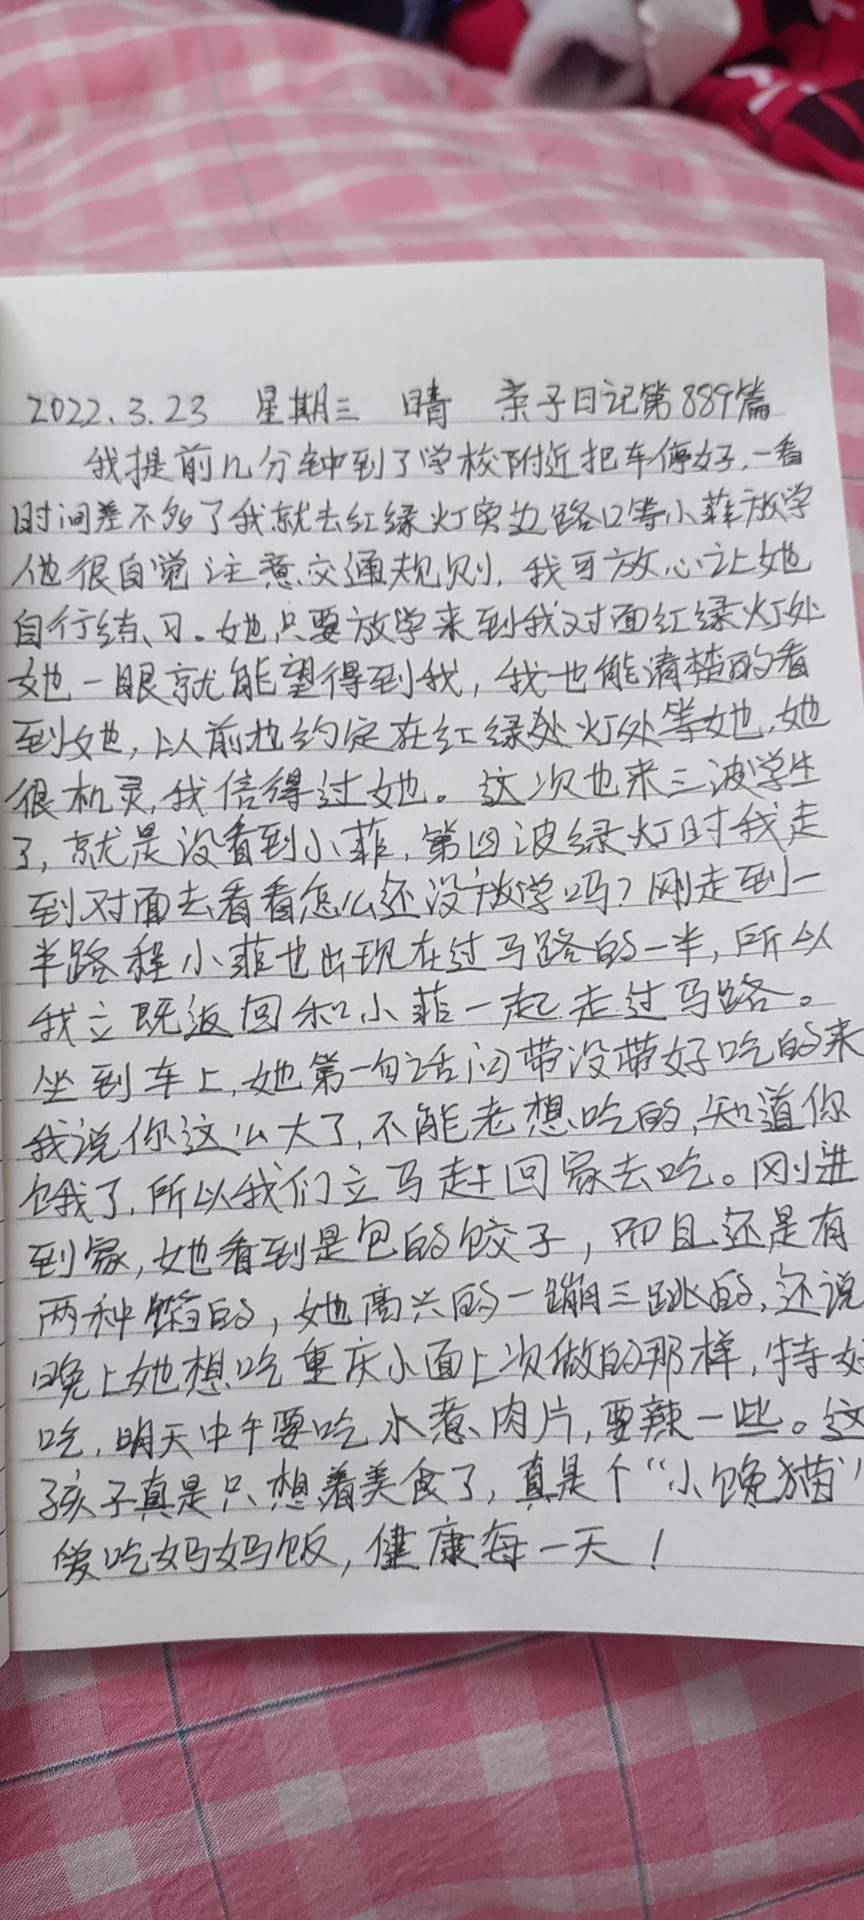 2022.3.23 星期三 晴 亲子日记第889篇
我提前几分钟到了学校附近把车停好,一看
时间差不多了我就去红绿灯旁边路口等小菲放学
他很自觉注意交通规则,我可放心让她
自行练习。她只要放学来到我对面红绿灯处
她一眼就能望得到我,我也能清楚的看
到她,以前也约定在红绿处灯处等她,她
很机灵,我信得过她。这次也来三波学生
了,就是没看到小菲,第四波绿灯时我走
到对面去看看怎么还没放学吗?刚走到一
半路程小菲也出现在过马路的一半,所以
我立既返回和小菲一起走过马路。
坐到车上,她第一句话问带没带好吃的来
我说你这么大了,不能老想吃的,知道你
饿了,所以我们立马赶回家去吃。刚进
到家,她看到是包的饺子,而且还是有
两种馅的,她高兴的一蹦三跳的,还说
晚上她想吃重庆小面上次做的那样,特好
吃,明天中午要吃水煮肉片,要辣一些。这
孩子真是只想着美食了,真是个“小馋猫”
爱吃妈妈饭,健康每一天!